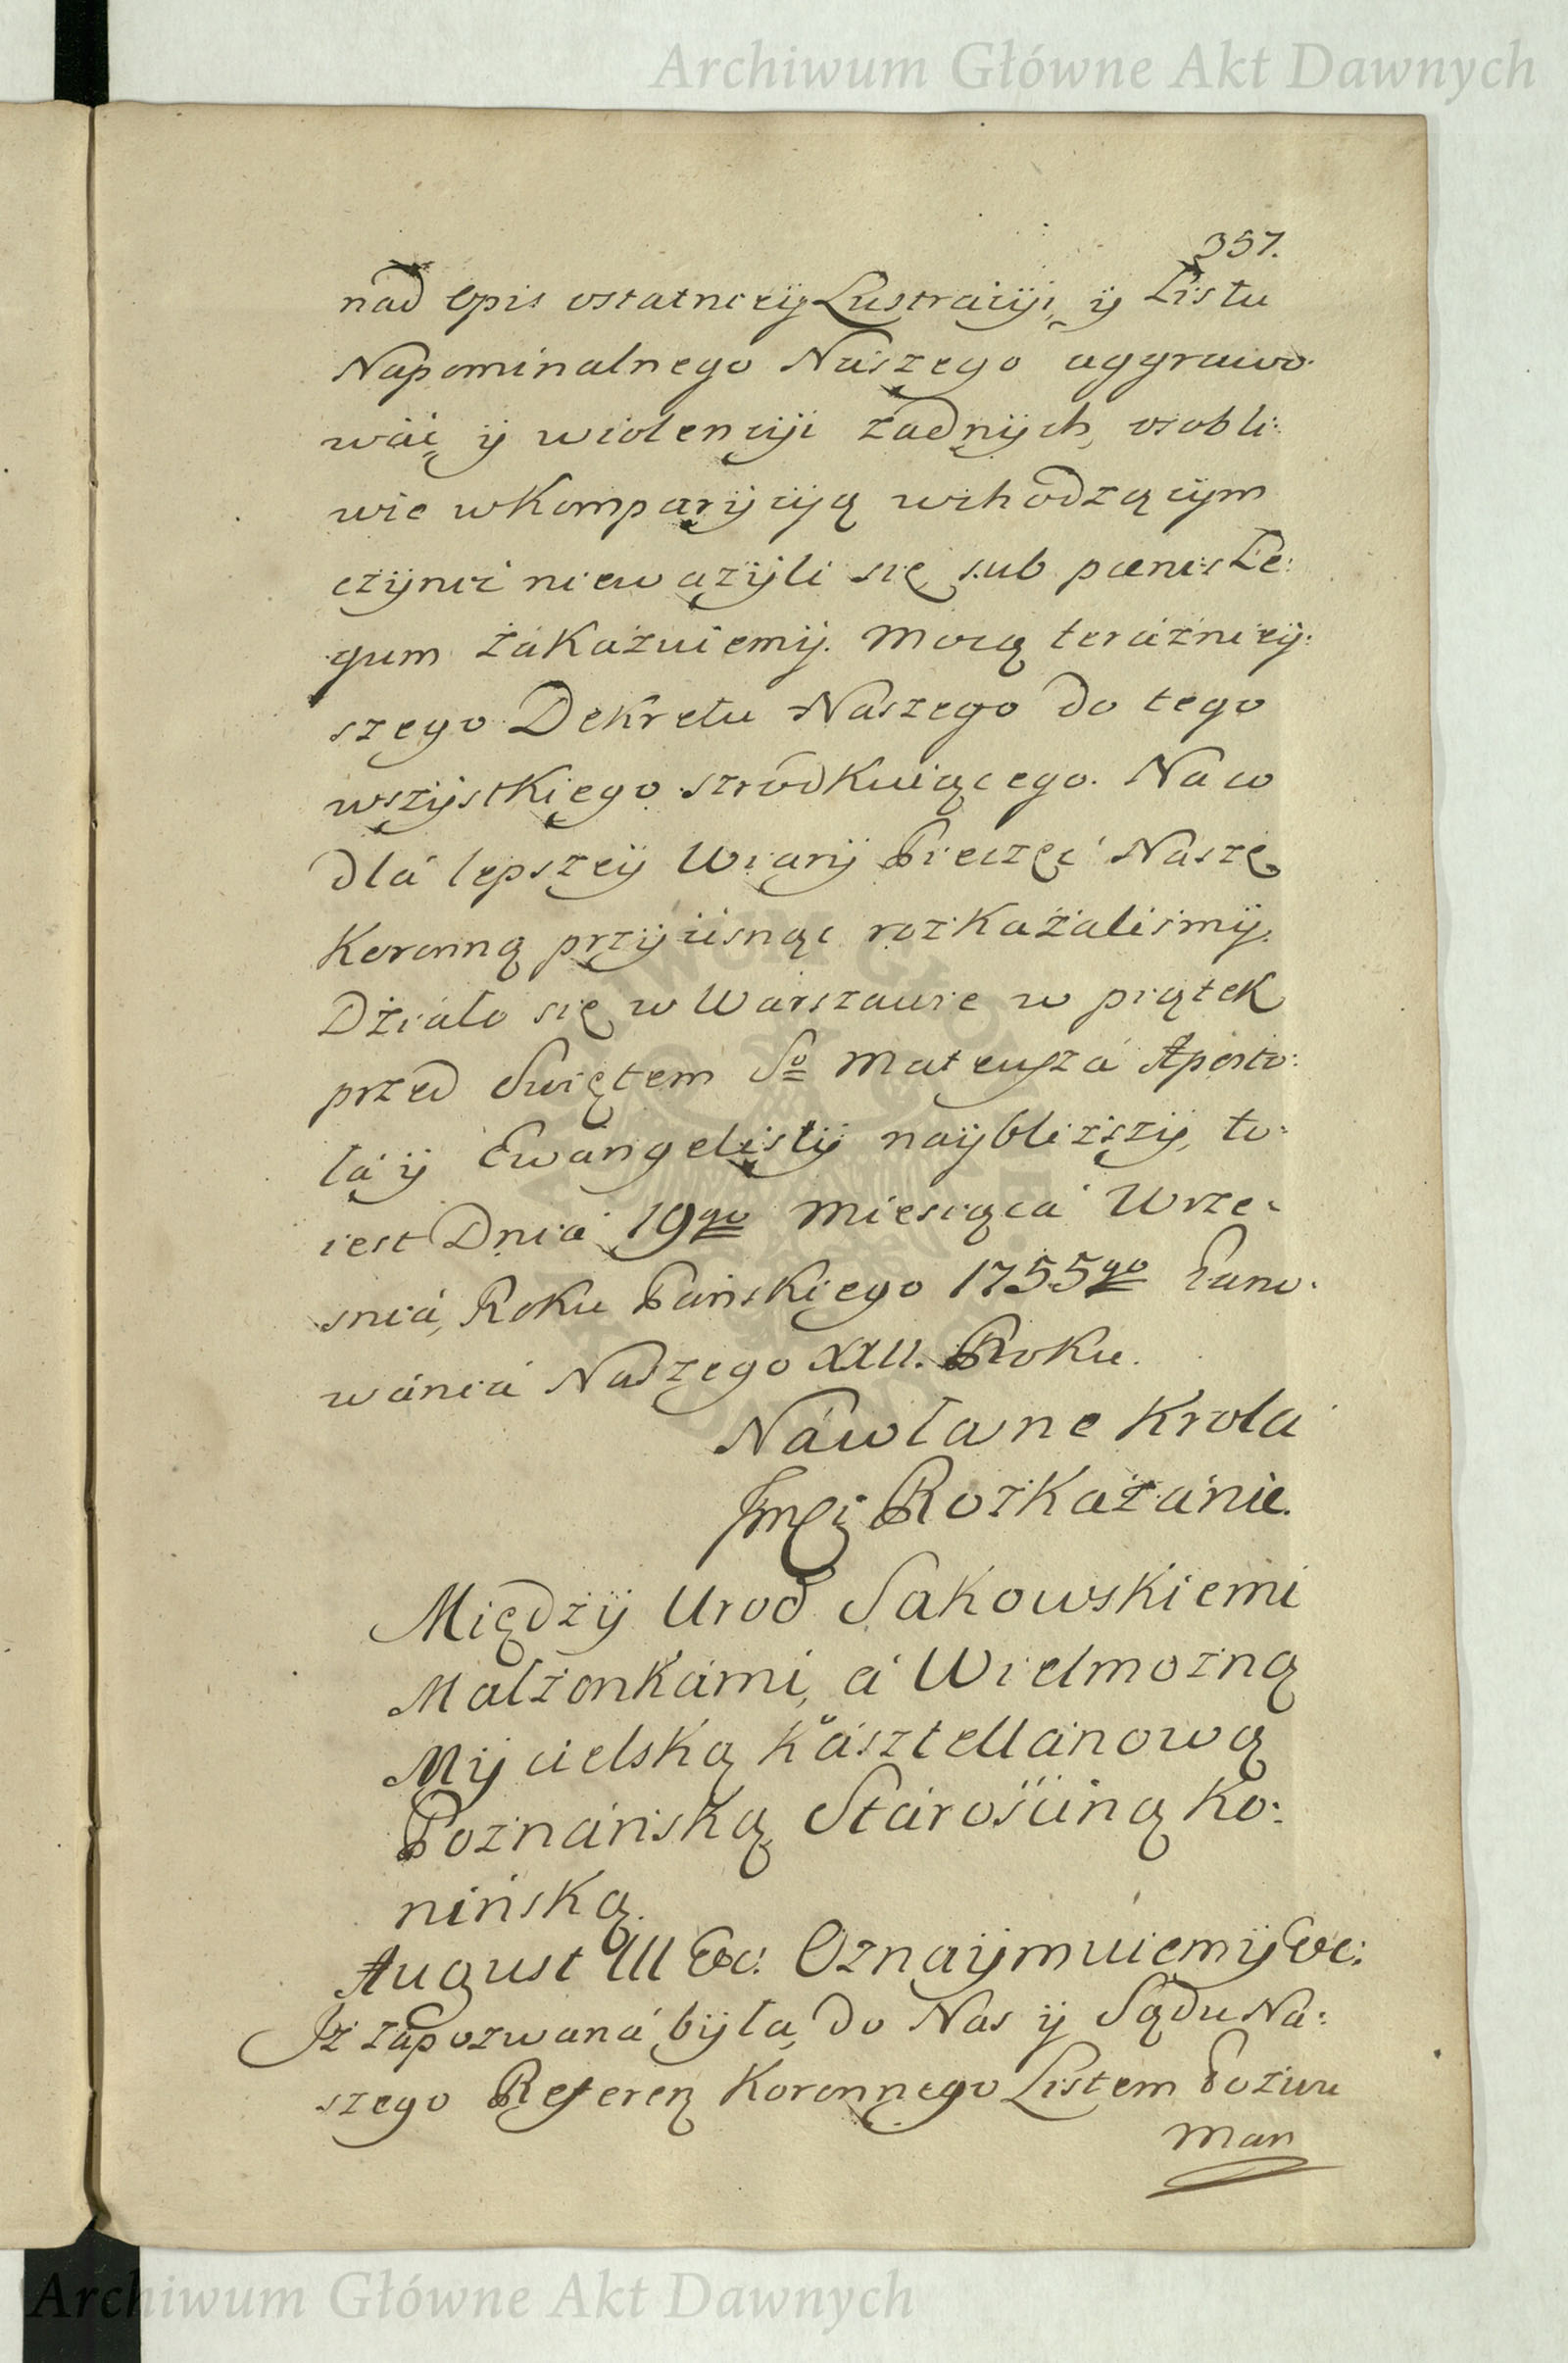 Archiwum Główne Akt Dawnych
357.
nad Opis ostatnieÿ Lustracÿi, ÿ Listu
Napominalnego Naszego aggrawo-
wáć, ÿ wiolencÿi żadnÿch, osobli:
wie w Komparÿcÿą wchodzącÿm
czÿnić nieważÿli się sub pœnis Le:
gum żákázuiemÿ. Mocą teráźnieÿ:
szego Dekretu Nászego do tego
wszÿstkiego szrodkuiącego. Na co
dlá lepszeÿ Wiarÿ Pieczęć Naszę
Koronną przÿcisnąc rozkazaliśmÿ.
Dźiáło się w Warszawie w piątek
przed Swiętem So Mateuszá Aposto:
łá ÿ Ewángelistÿ naÿbliższÿ, to-
iest Dniá 19go Miesiącá Wrze-
śniá, Roku Pańskiego 1755go Páno-
wániá Naszego XXII. Roku.
Náwłasne Krola
Jmci Rozkazánie.
Międzÿ Urod Sakowskiemi
Małżonkámi, á Wielmozną
Mÿcielską Kásztellánową
Poznáńską Stárośćiną Ko:
nińską.
August III &c: Oznaÿmuiemÿ &c:
Iż zápozwaná bÿła, do Nas ÿ Sądu Na:
szego Referen Koronnego Listem Pozwu
Man
Archiwum Główne Akt Dawnych